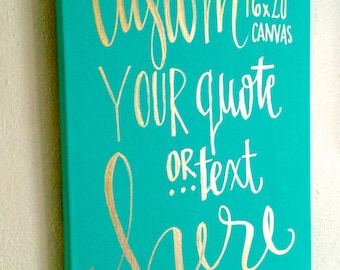 custom 16x20
CANVAS
YOUR quote
OR... text
here